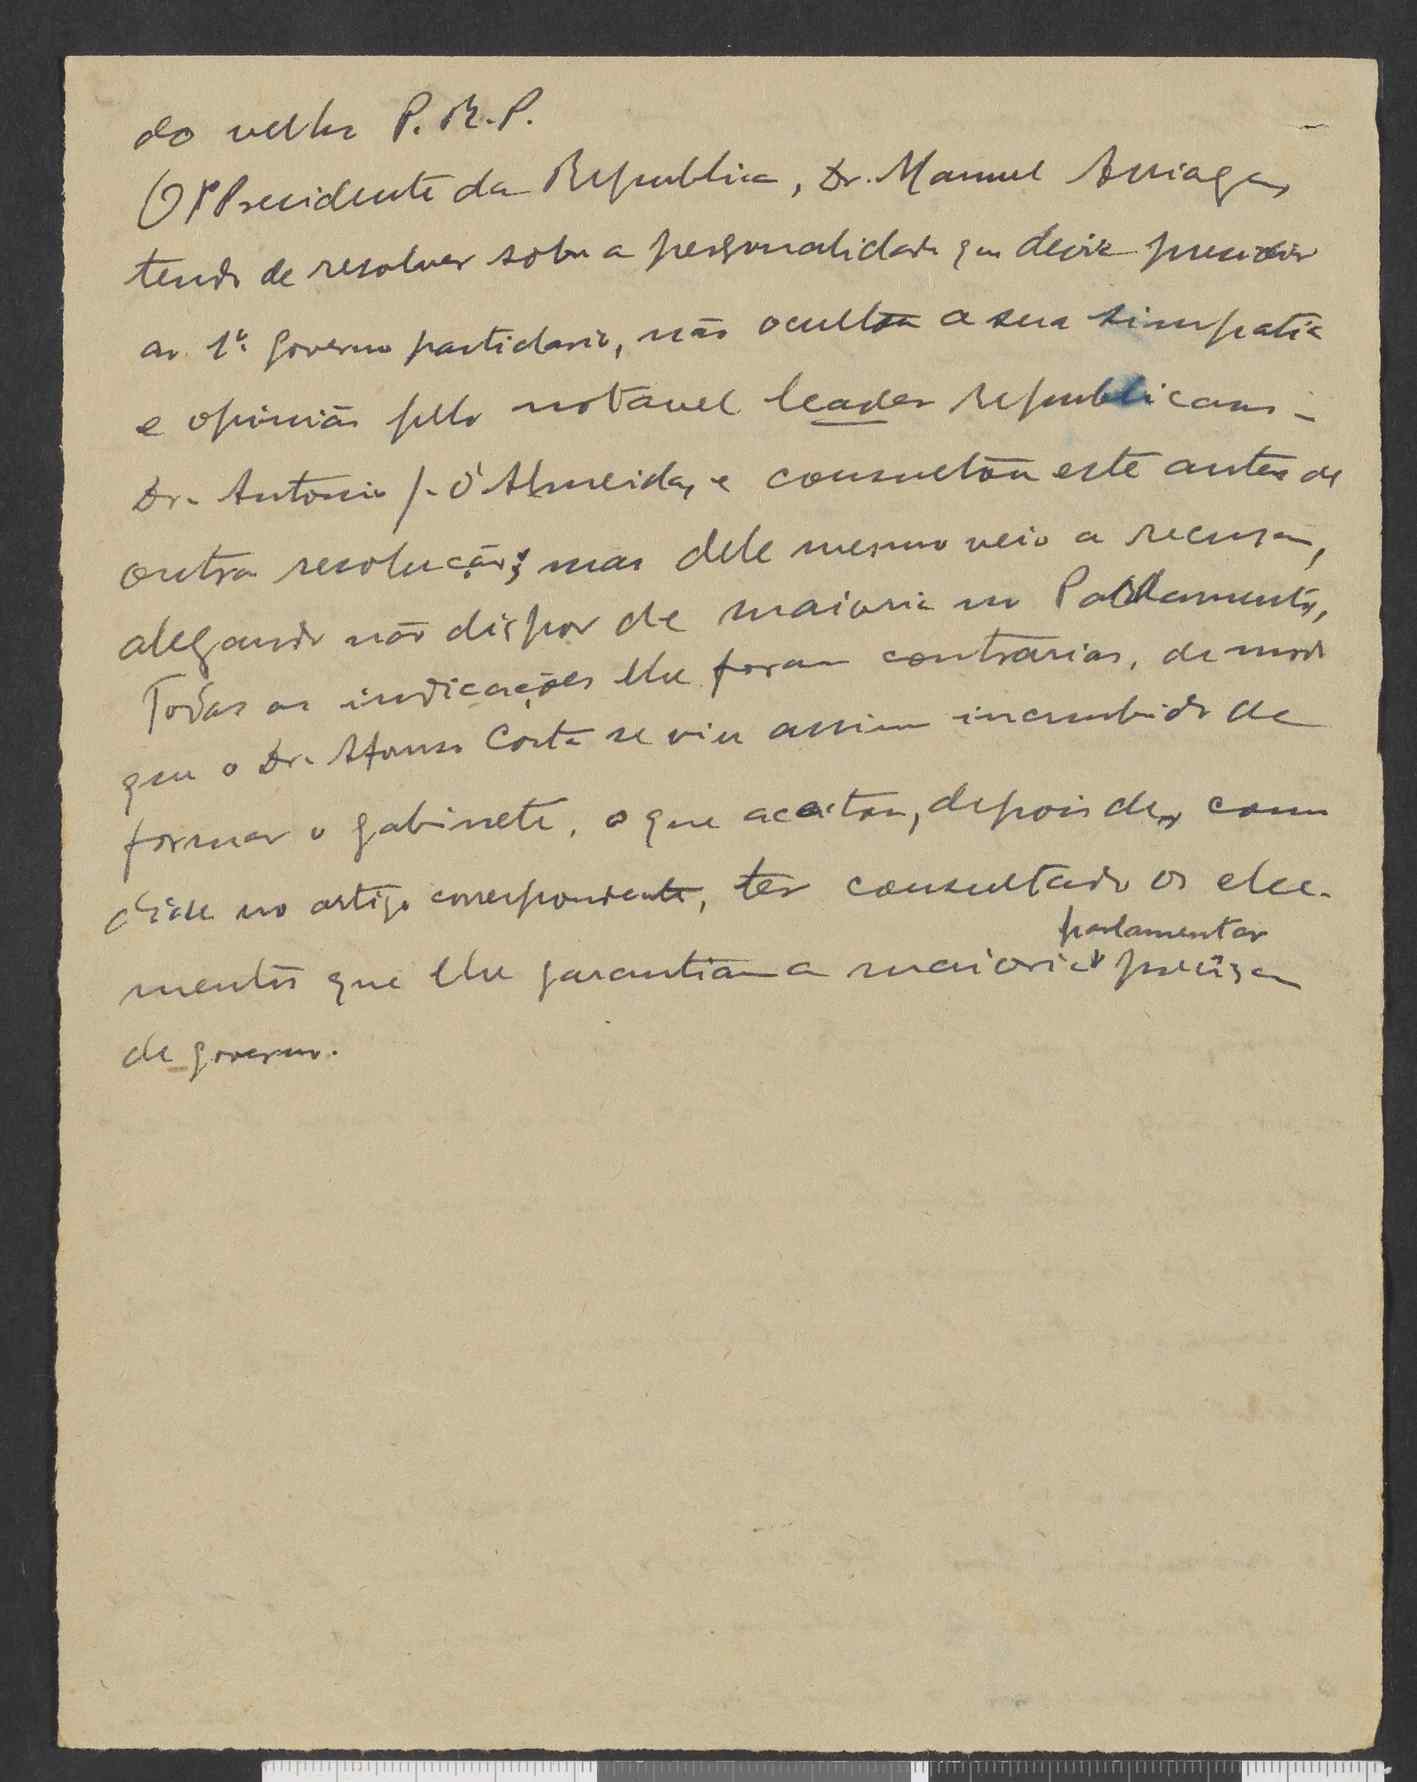 do velho P. R. P.
O Presidente da Republica, Dr. Manuel Arriaga,
tendo de resolver sobre a personalidade que devia presidir
ao 1º governo partidario, não ocultou a sua simpatia
e opinião pelo notavel leader republicano -
Dr. Antonio J. d'Almeida, e consultou este antes de
outra resolução; mas dele mesmo veio a recusa,
alegando não dispor de maioria no Parlamento,
Todas as indicações lhe foram contrarias, de modo
que o Dr. Afonso Costa se viu assim incumbido de
formar o gabinete, o que aceitou, depois de, como
disse no artigo correspondente, ter consultado os ele-
parlamentar
mentos que lhe garantiam a maioria precisa
de governo.